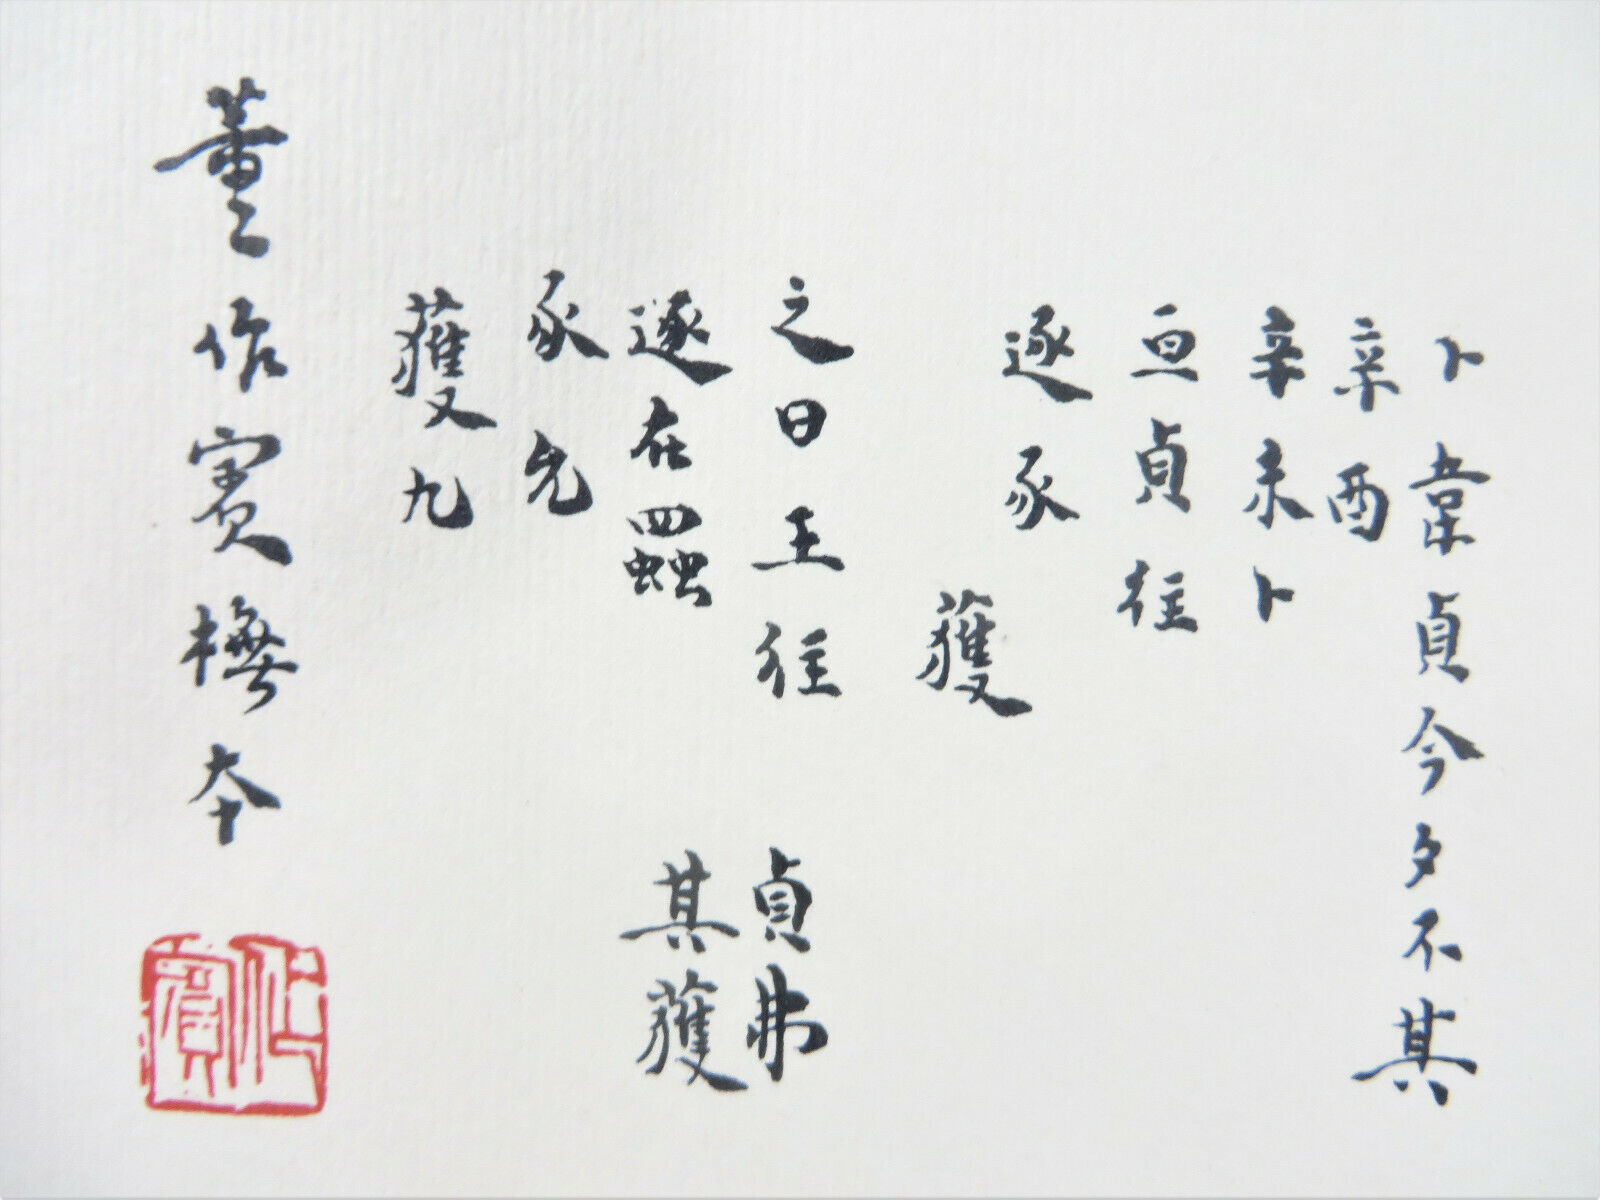 卜韋貞今夕不其
辛酉
辛未卜
亘貞往
逐豕
獲
之日王往
逐在
豕允
獲九
貞弗
其獲
董作賓橅本
作賓